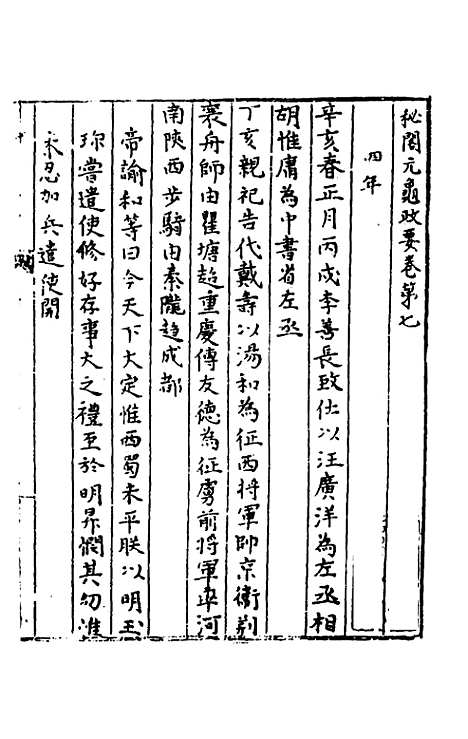 秘閣元龜政要卷第七
四年
辛亥春正月丙戍李善長致仕以汪廣洋為左丞相
胡惟庸為中書省左丞
丁亥親祀告代戴壽以湯和為征西將軍帥京衛荊
襄舟師由瞿塘趍重慶傅友德為征虜前將軍率河
南陝西步騎由秦隴趍成都
帝諭和等曰今天下大定惟西蜀未平朕以明玉
珍嘗遣使修好存事大之禮至於明昇憫其幼稚
未忍加兵遣使開